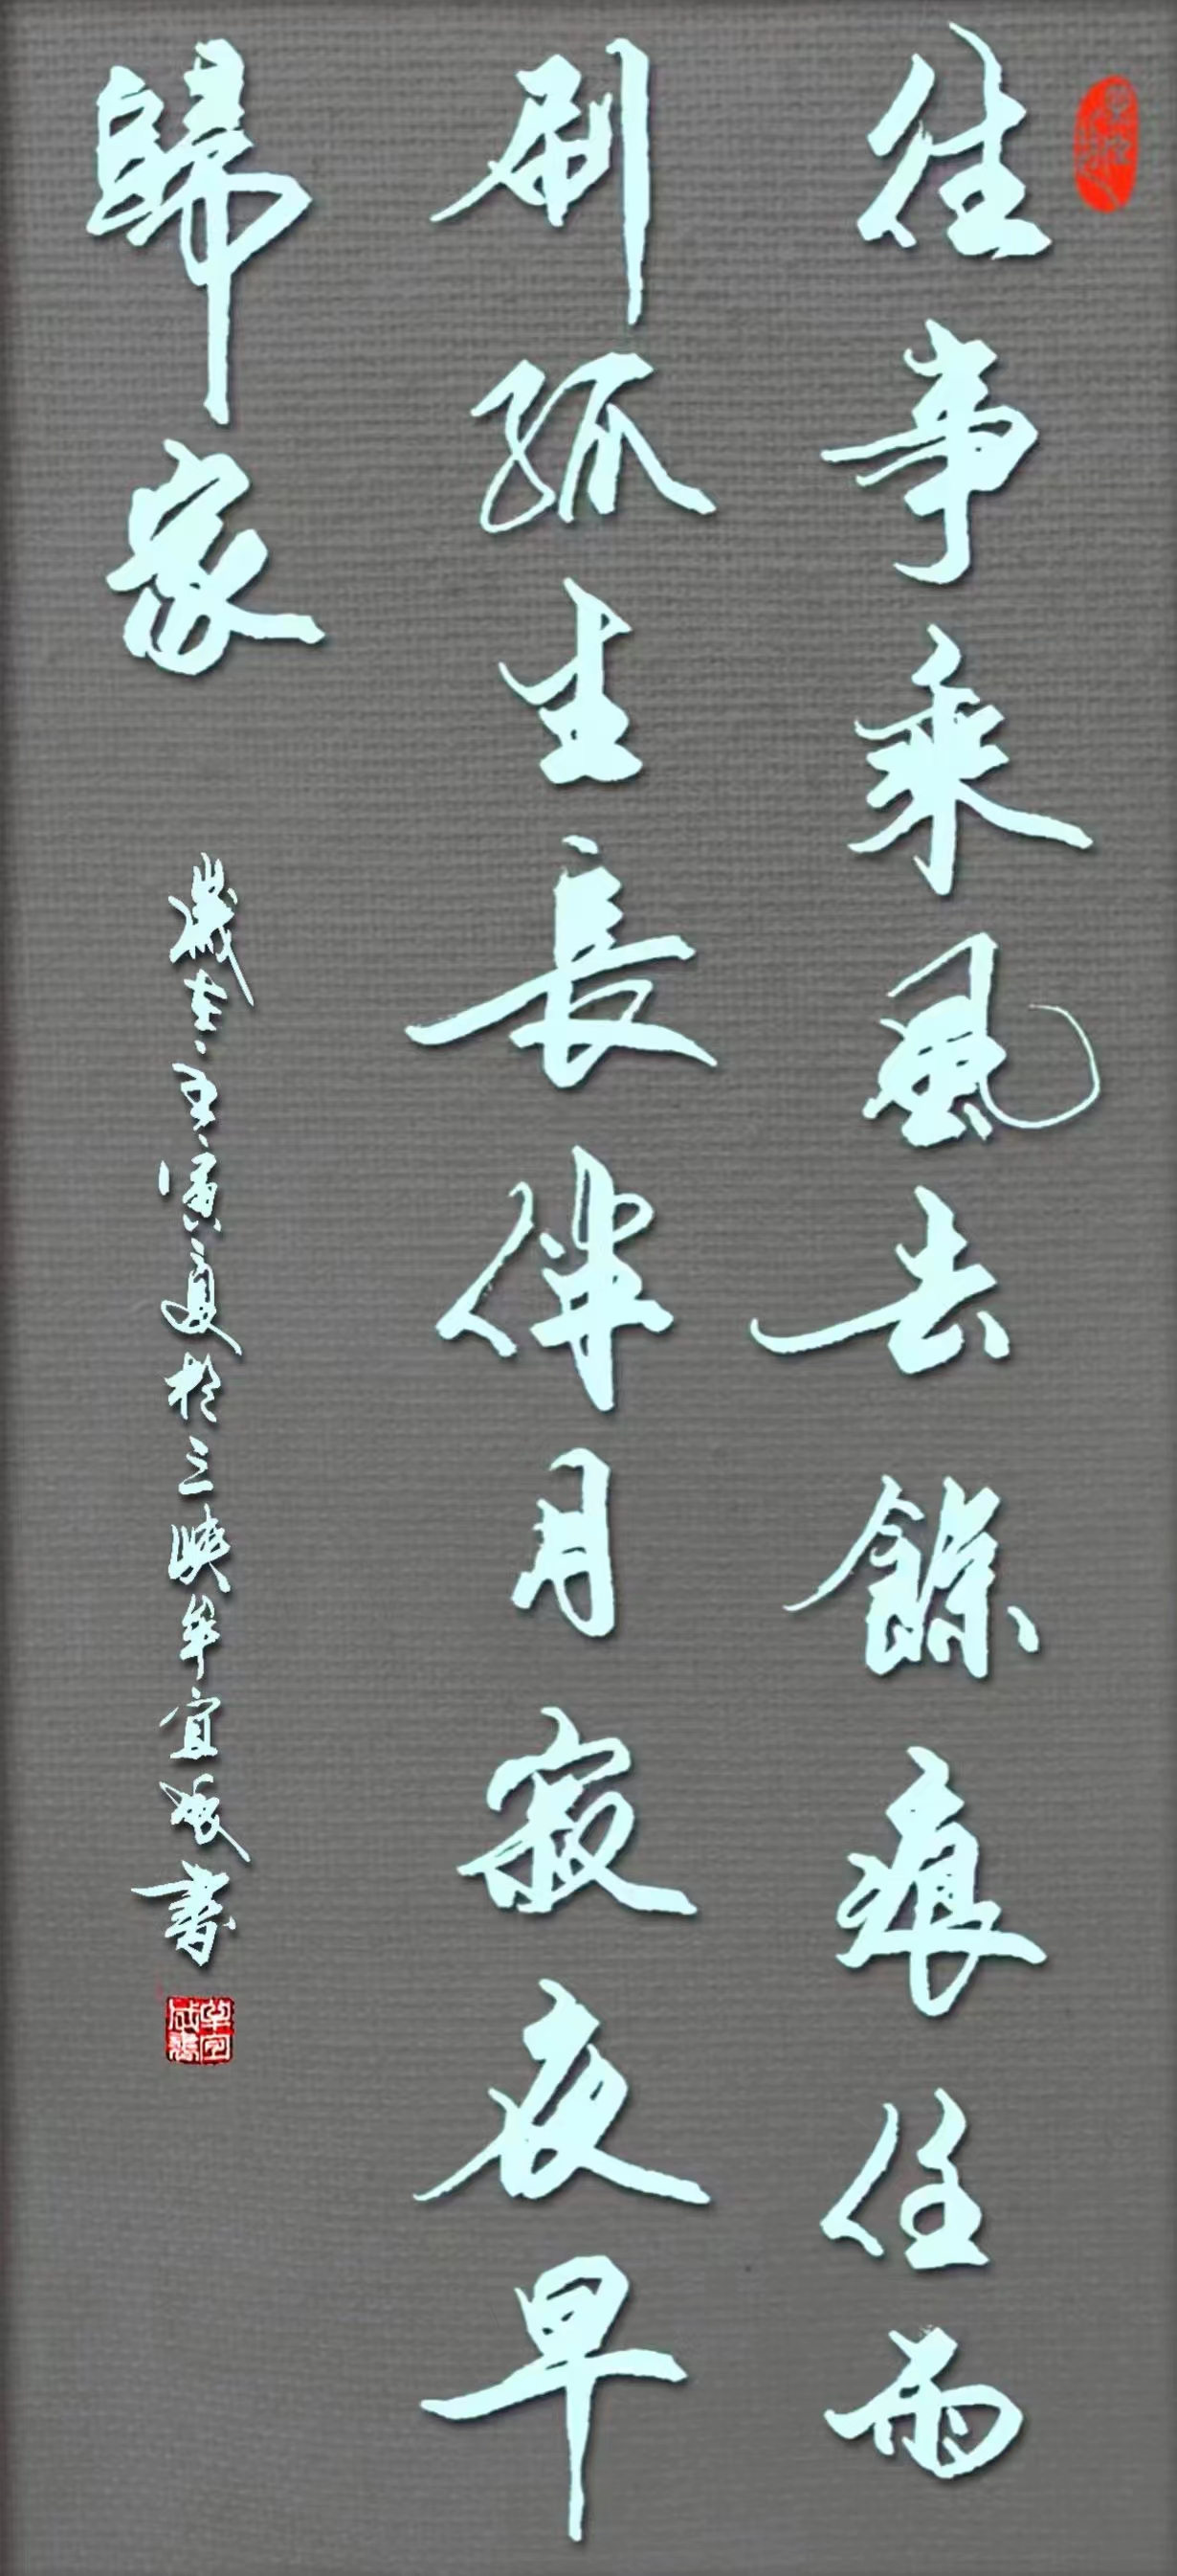 往事乘風去餘痕任雨
刷孤生長伴月寂夜早
歸家
壬寅夏於三峡牟宜成書